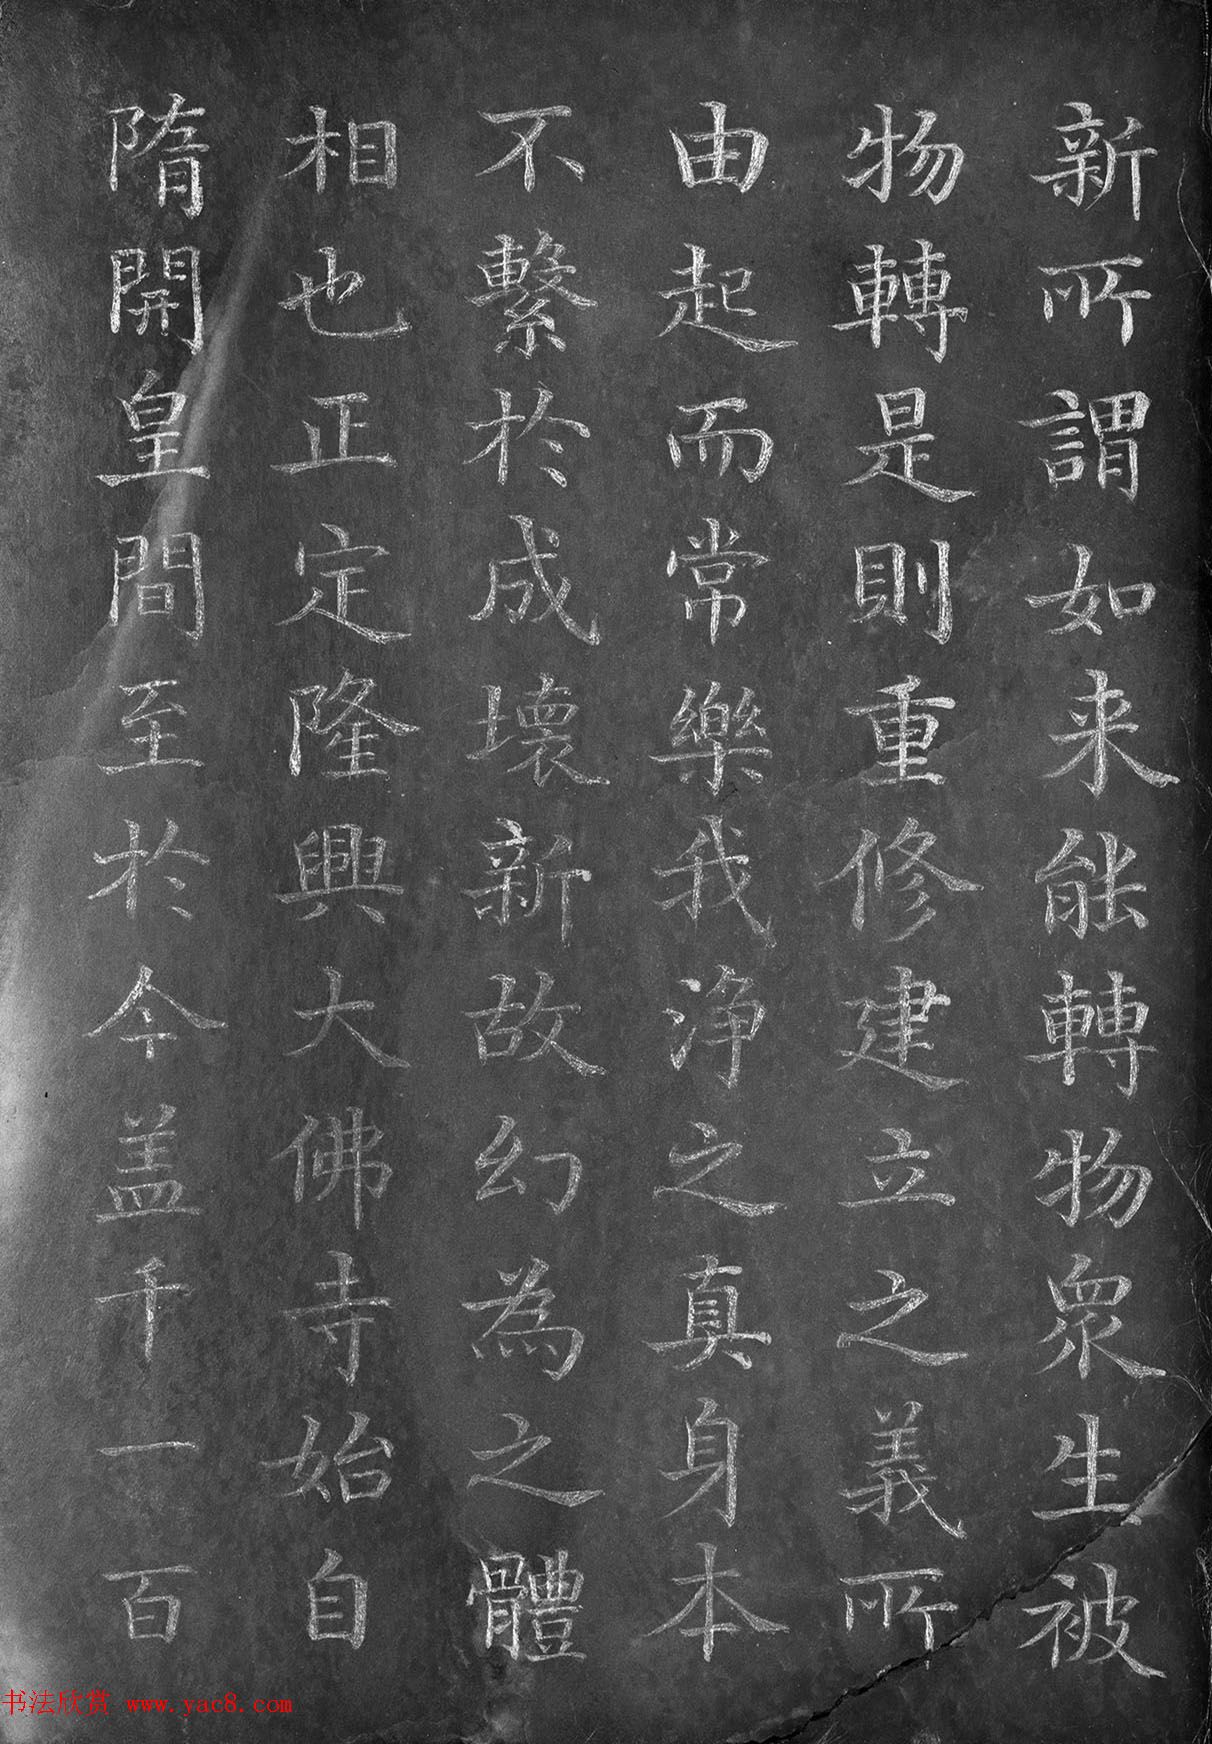 新所謂如来能轉物眾生被
物轉是則重修建立之義所
由起而常樂我淨之真身本
不繫於成壞新故幻為之體
相也正定隆興大佛寺始自
隋開皇間至於今盖千一百
书法欣赏 www.yac8.com